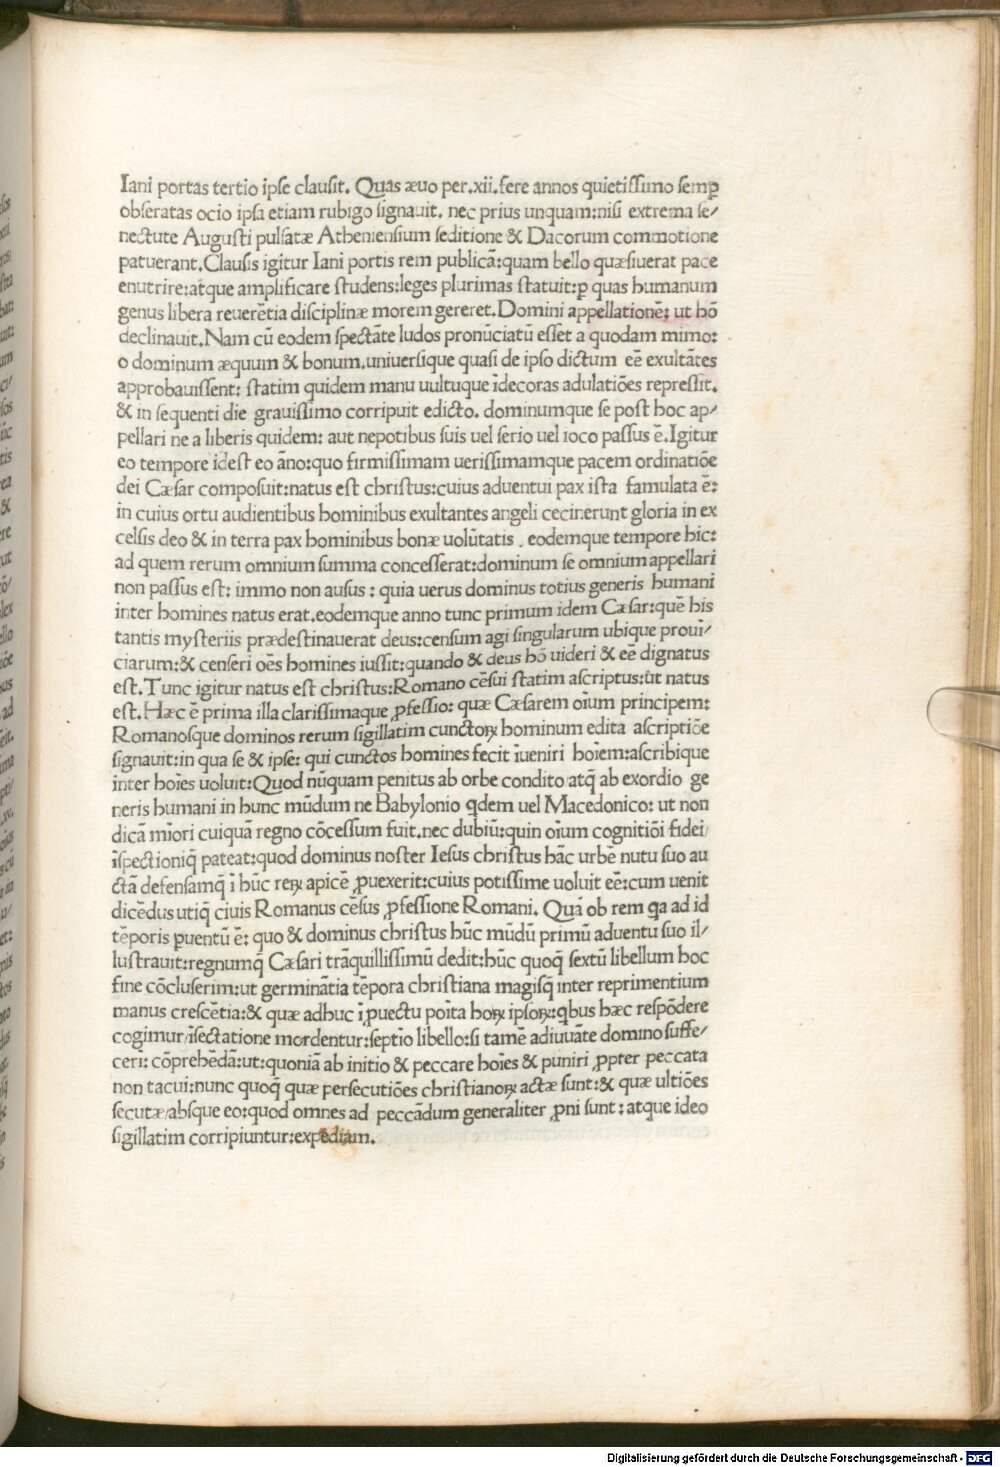 Iani portas tertio ipse clausit. Quas æuo per .xii. fere annos quietissimo semꝑ
obseratas ocio ipsa etiam rubigo signauit. nec prius unquam:nisi extrema se/
nectute Augusti pulsatæ Atheniensium seditione & Dacorum commotione
patuerant. Clausis igitur Iani portis rem publicā:quam bello quæsiuerat pace
enutrire:atque amplificare studens:leges plurimas statuit:ꝑ quas humanum
genus libera reuerētia disciplinæ morem gereret. Domini appellationē: ut hō
declinauit. Nam cū eodem spectāte ludos pronūciatū esset a quodam mimo:
o dominum æquum & bonum.uniuersique quasi de ipso dictum eē exultātes
approbauissent: statim quidem manu uultuque īdecoras adulatiōes repressit.
& in sequenti die grauissimo corripuit edicto. dominumque se post hoc ap/
pellari ne a liberis quidem: aut nepotibus suis uel serio uel ioco passus ē. Igitur
eo tempore idest eo āno:quo firmissimam uerissimamque pacem ordinatiōe
dei Cæsar composuit:natus est christus:cuius aduentui pax ista famulata ē:
in cuius ortu audientibus hominibus exultantes angeli cecinerunt gloria in ex
celsis deo & in terra pax hominibus bonæ uolūtatis . eodemque tempore hic:
ad quem rerum omnium summa concesserat:dominum se omnium appellari
non passus est: immo non ausus : quia uerus dominus totius generis humani
inter homines natus erat.eodemque anno tunc primum idem Cæsar:quē his
tantis mysteriis prædestinauerat deus:censum agi singularum ubique proui/
ciarum:& censeri oēs homines iussit:quando & deus hō uideri & eē dignatus
est. Tunc igitur natus est christus:Romano cēsui statim ascriptus:ut natus
est. Hæc ē prima illa clarissimaque ꝓfessio: quæ Cæsarem oīum principem:
Romanosque dominos rerum sigillatim cunctoꝝ hominum edita ascriptiōe
signauit:in qua se & ipse: qui cunctos homines fecit īueniri hoīem:ascribique
inter hoīes uoluit:Quod nūquam penitus ab orbe condito atq̄ ab exordio ge
neris humani in hunc mūdum ne Babylonio qdem uel Macedonico: ut non
dicā mīori cuiquā regno cōcessum fuit.nec dubiū:quin oīum cognitiōi fidei/
īspectioniq̄ pateat:quod dominus noster Iesus christus hāc urbē nutu suo au
ctā defensamq̄ ī huc reꝝ apicē ꝓuexerit:cuius potissime uoluit eē:cum uenit
dicēdus utiq̄ ciuis Romanus cēsus ꝓfessione Romani. Quā ob rem qa ad id
tēporis ꝑuentū ē: quo & dominus christus hūc mūdū primū aduentu suo il/
lustrauit:regnumq̄ Cæsari trāquillissimū dedit:hūc quoq̄ sextū libellum hoc
fine cōcluserim:ut germinātia tēpora christiana magisq̄ inter reprimentium
manus crescētia:& quæ adhuc ī ꝓuectu poīta hoꝝ ipsoꝝ:qbus hæc respōdere
cogimur/īsectatione mordentur:septīo libello:si tamē adiuuāte domino suffe/
ceri: cōprehēdā:ut:quoniā ab initio & peccare hoīes & puniri ꝓpter peccata
non tacui:nunc quoq̄ quæ persecutiōes christianoꝝ actæ sunt:& quæ ultiōes
secutæ/absque eo:quod omnes ad peccādum generaliter ꝓni sunt : atque ideo
sigillatim corripiuntur:expediam.
Digitalisierung gefördert durch die Deutsche Forschungsgemeinschaft - DFG